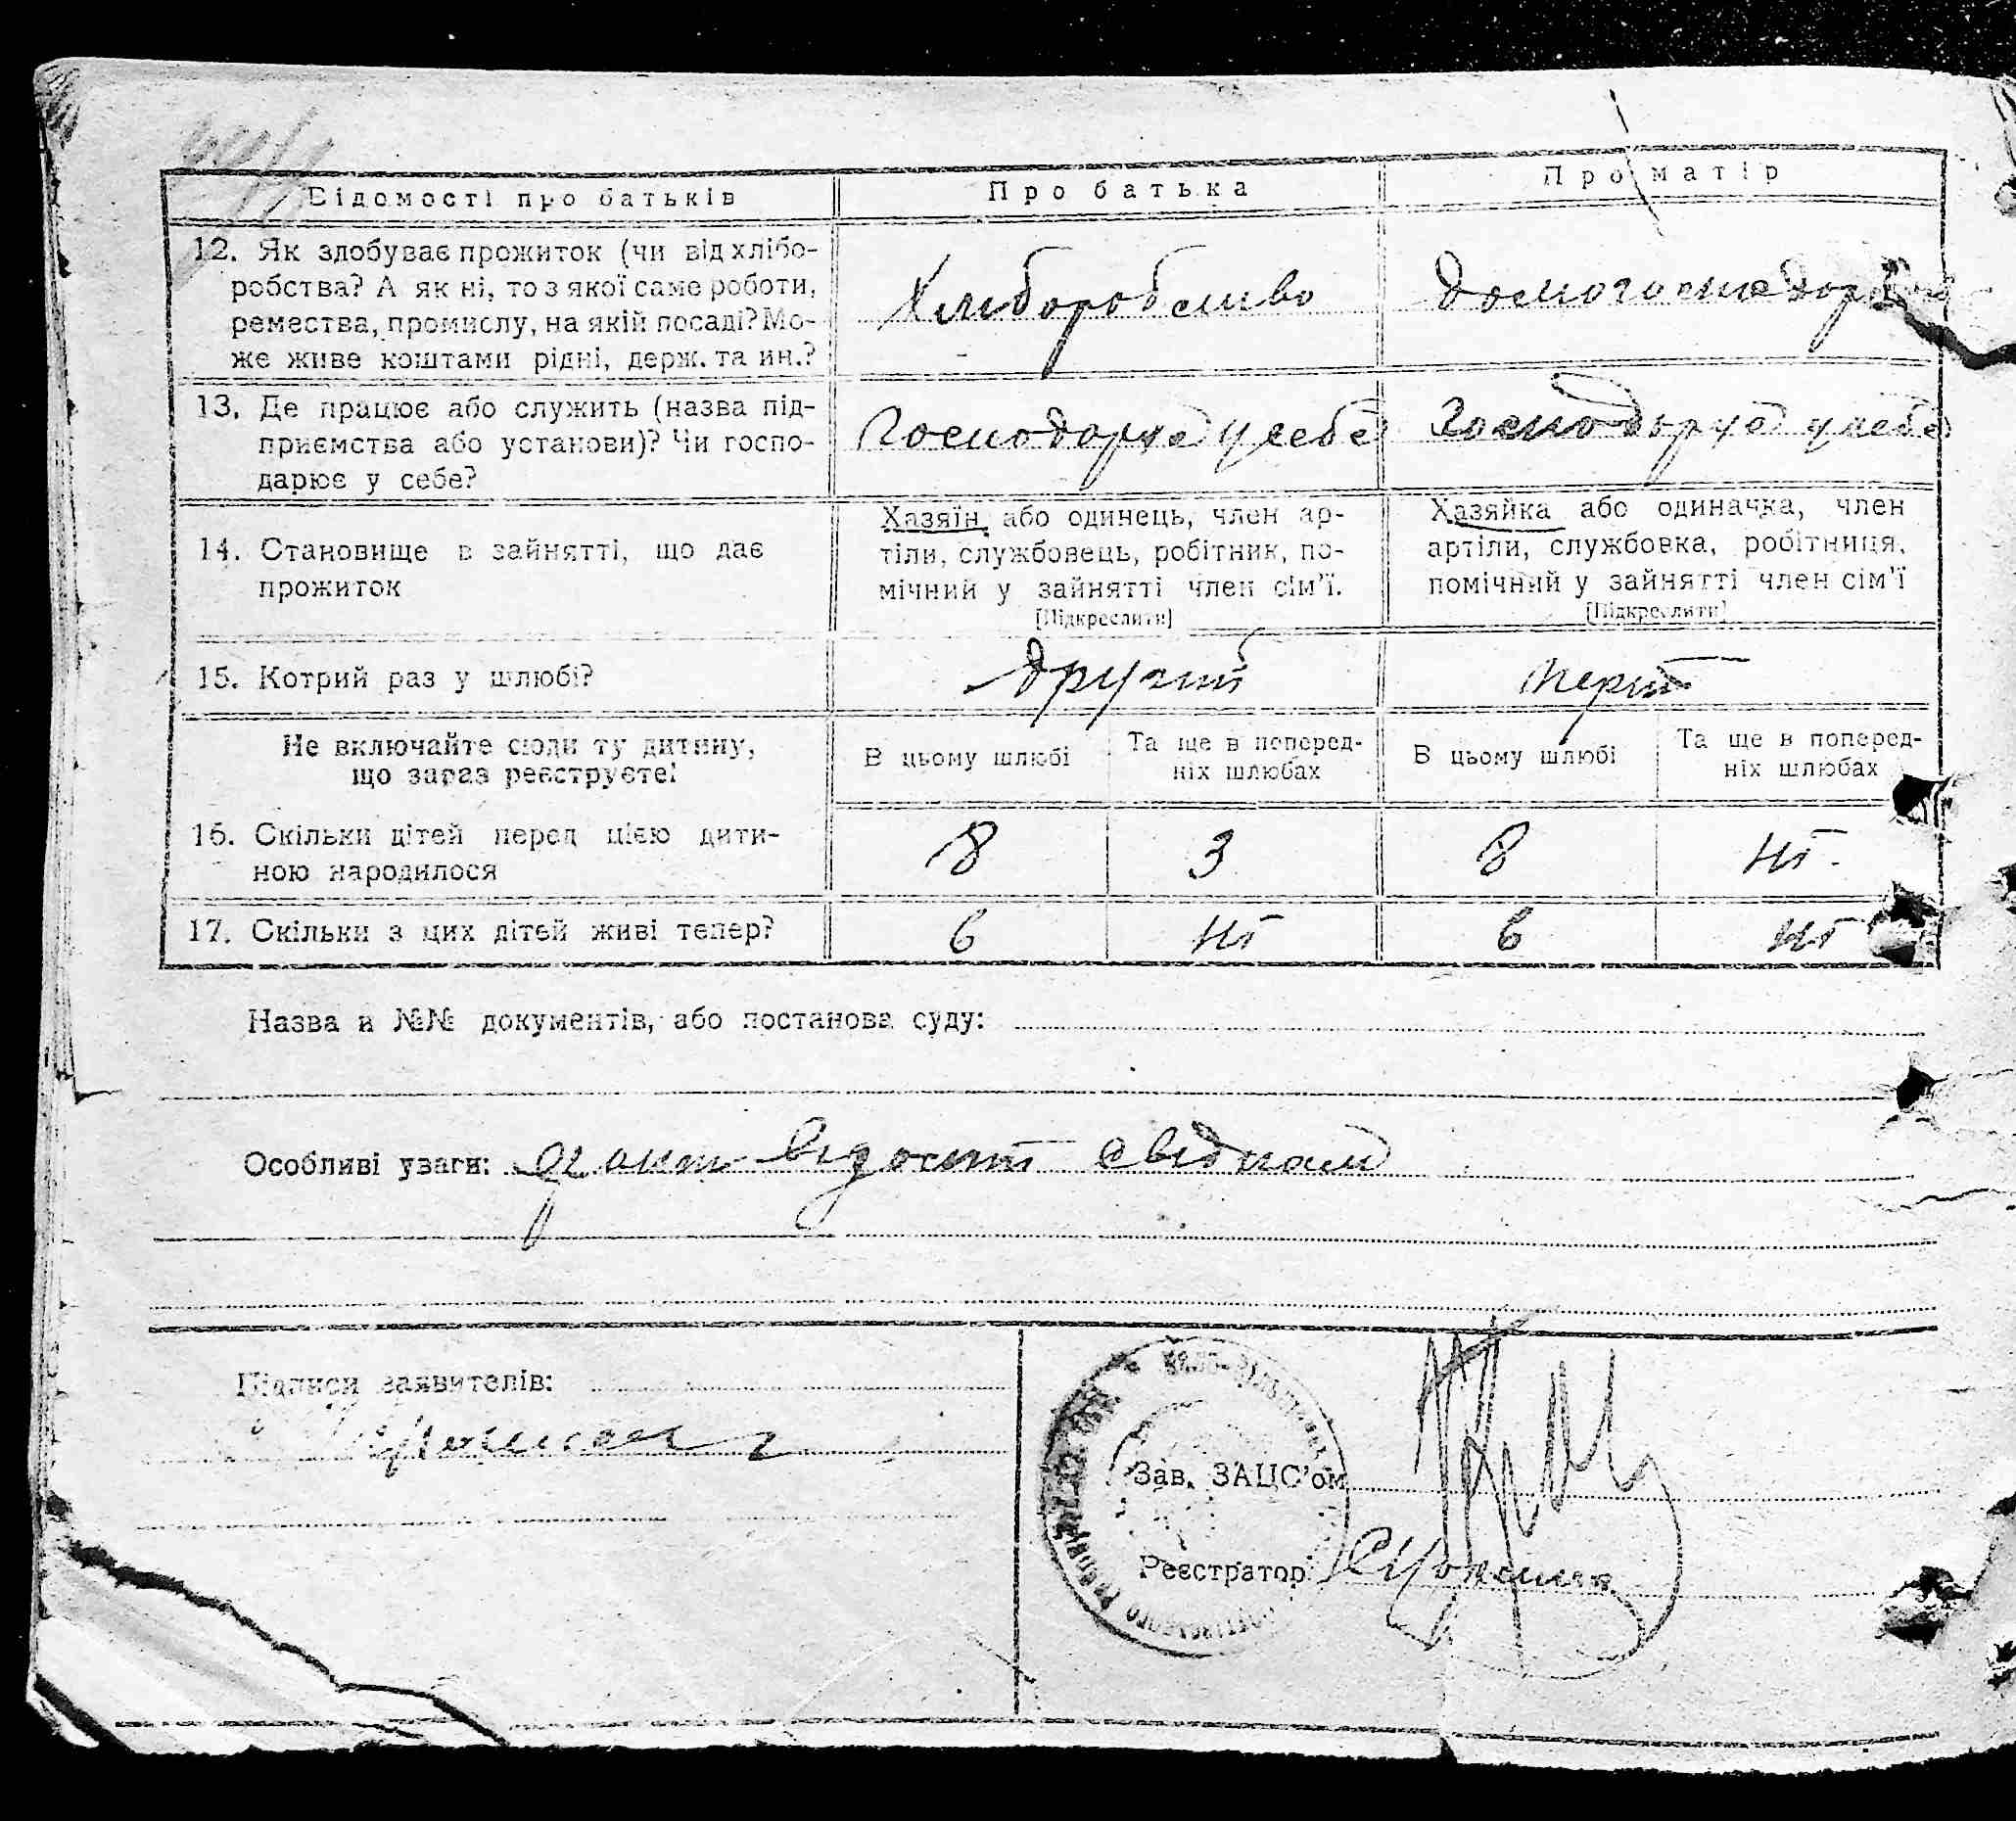 Відомості про батьків
Про батька
Про матір
12. Як здобуває прожиток (чи від хлібо-
робства? А як ні, то з якої саме роботи,
ремества, промислу, на якій посаді? Мо-
же живе коштами рідні, держ. та ин.?
Хліборобство
13. Де працює або служить (назва під-
приємства або установи)? Чи госпо-
дарює у себе?
Господарує у себе
Господарує у себе
14. Становище в зайнятті, що дає
прожиток
Хазяїн, або одинець, член ар-
тіли, службовець, робітник, по-
мічний у зайнятті член сім'ї.
[Підкреслити]
Хазяйка або одиначка, член
артіли, службовка, робітниця,
помічний у зайнятті член сім'ї
[Підкреслити]
15. Котрий раз у шлюбі?
другий
перш
Не включайте сюди ту дитину,
що зараз реєструєте!
В цьому шлюбі
Та ще в поперед-
ніх шлюбах
В цьому шлюбі
Та ще в поперед-
ніх шлюбах
16. Скільки дітей перед цією дити-
ною народилося
8
3
8
ні
17. Скільки з цих дітей живі тепер?
6
ні
6
ні
Назва и №№ документів, або постанова суду:
Особливі уваги:
Підписи заявителів:
Зав. ЗАЦС'ом
Реєстратор